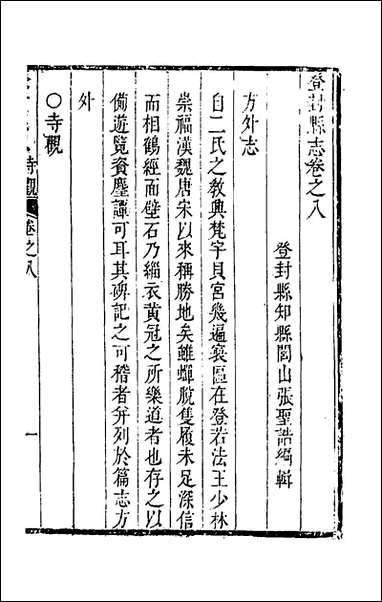 登封縣志卷之八
登封縣知縣閭山張聖誥編輯
方外志
自二氏之教興梵宇貝宮幾遍寰區在登若法王少林
崇福漢魏唐宋以來稱勝地矣雖蟬脫隻履未足深信
而相鶴經而壁石乃緇衣黃冠之所樂道者也存之以
備遊覽資麈譚可耳其碑記之可稽者并列於篇志方
外
○寺觀
寺觀 卷之八 一